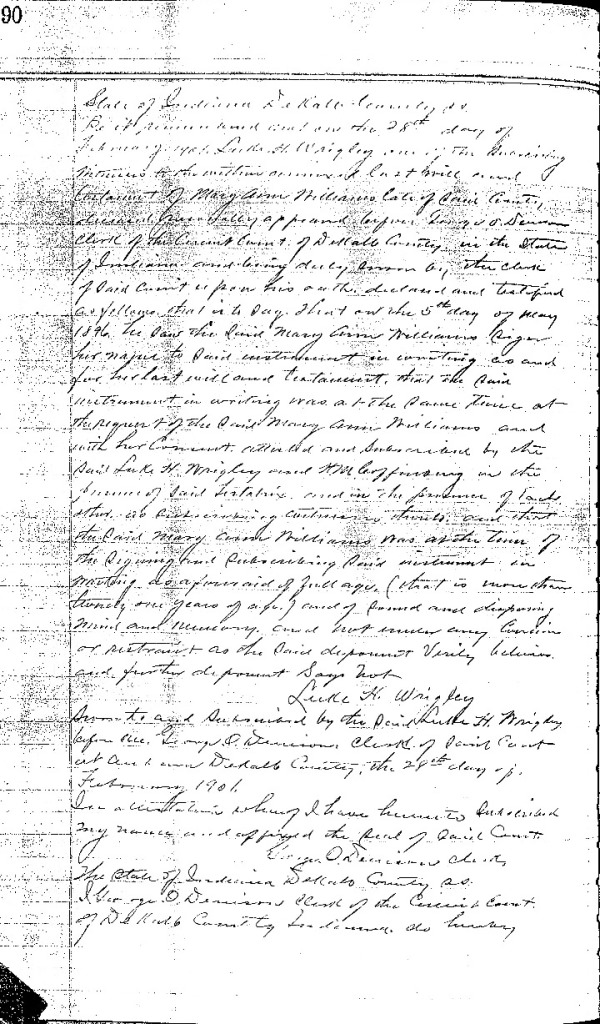 90
State of Indiana DeKalb County ss.
Be it remembered that on the 28th day of
February 1901 Luke H. Wrigley one of the subscribing
witnesses to the within annexed last will and
testament of Mary Ann Williams late of said County
deceased personally appeared before George O. Denison
Clerk of the Circuit Court of DeKalb County in the State
of Indiana and being duly sworn by the Clerk
of said Court upon his oath declared and testified
as follows that is to say. That on the 5th day of May
1896 he saw the said Mary Ann Williams sign
her name to said instrument in writing as and
for her last will and testament, that the said
instrument in writing was at the same time at
the request of the said Mary Ann Williams and
with her consent attested and subscribed by the
said Luke H. Wrigley and H M Coffinberry in the
presence of said testatrix and in the presence of each
other as subscribing witnesses thereto and that
the said Mary Ann Williams was at the time of
the signing and subscribing said instrument in
writing as aforesaid of full age, (that is more than
twenty one years of age.) and of sound and disposing
mind and memory and not under any Coercion
or restraint as the said deponent Verily believes
and further deponent says not
Luke H. Wrigley
Sworn to and Subscribed by the said Luke H. Wrigley
before me George O. Denison Clerk of said Court
at Auburn DeKalb County, the 28th day of
February 1901.
In attestation whereof I have hereunto Subscribed
my name and affixed the seal of said Court.
George O Denison Clerk
The State of Indiana DeKalb County ss.
I George O. Denison Clerk of the Circuit Court.
of DeKalb County Indiana do hereby